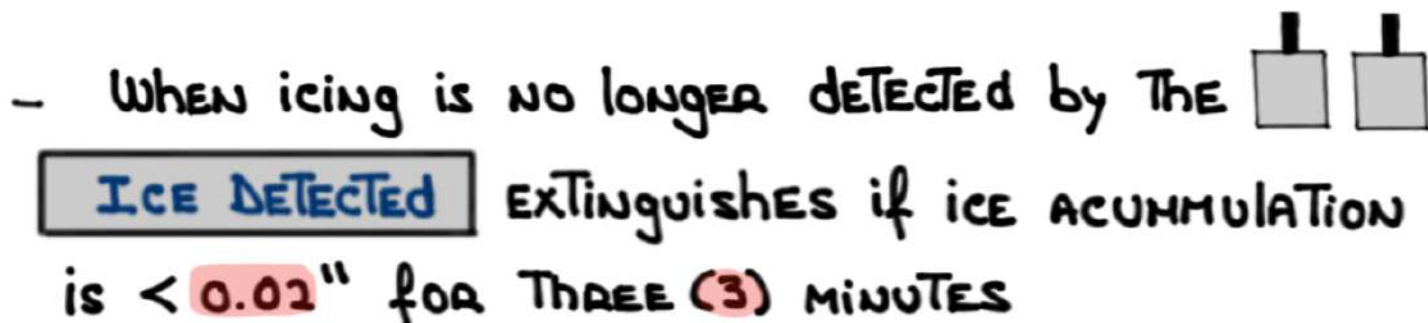 - WHEN icing is NO longER dETECTEd by ThE
ICE DETECTED EXTinguishES if icE ACUMMUlATiON
is < 0.02" foR ThREE (3) MiNUTES